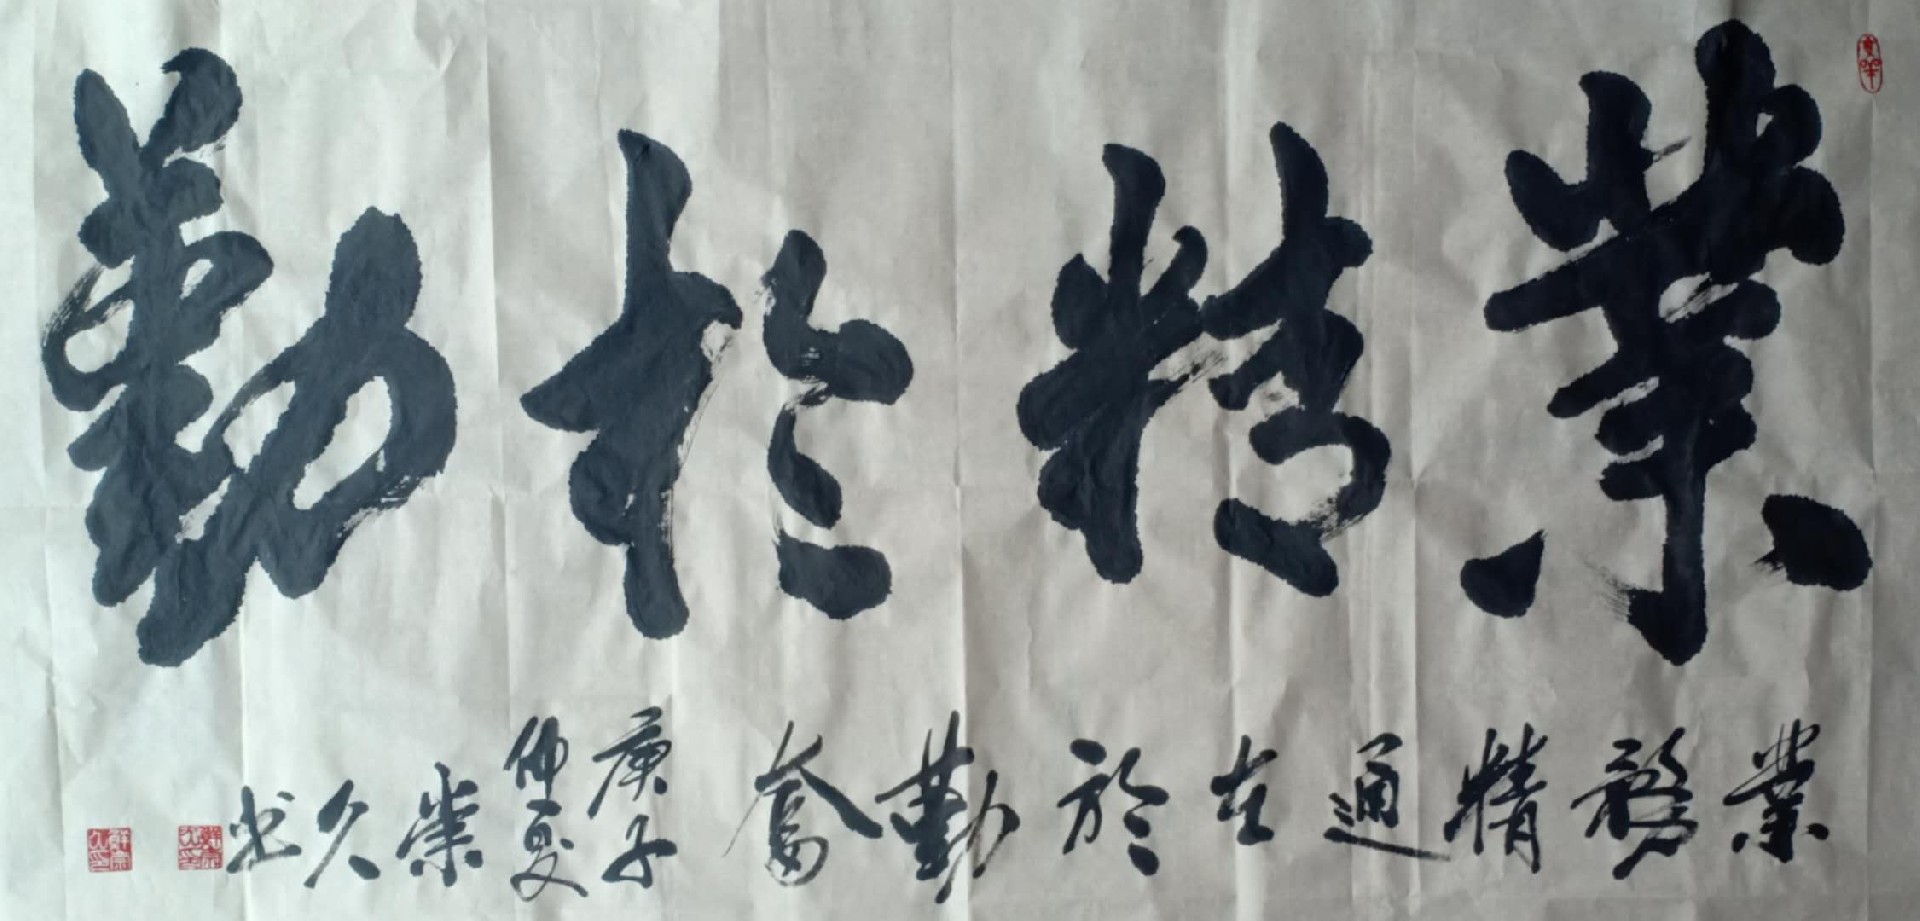 業精於勤
業務精通在於勤奮
庚子
仲夏
榮久书